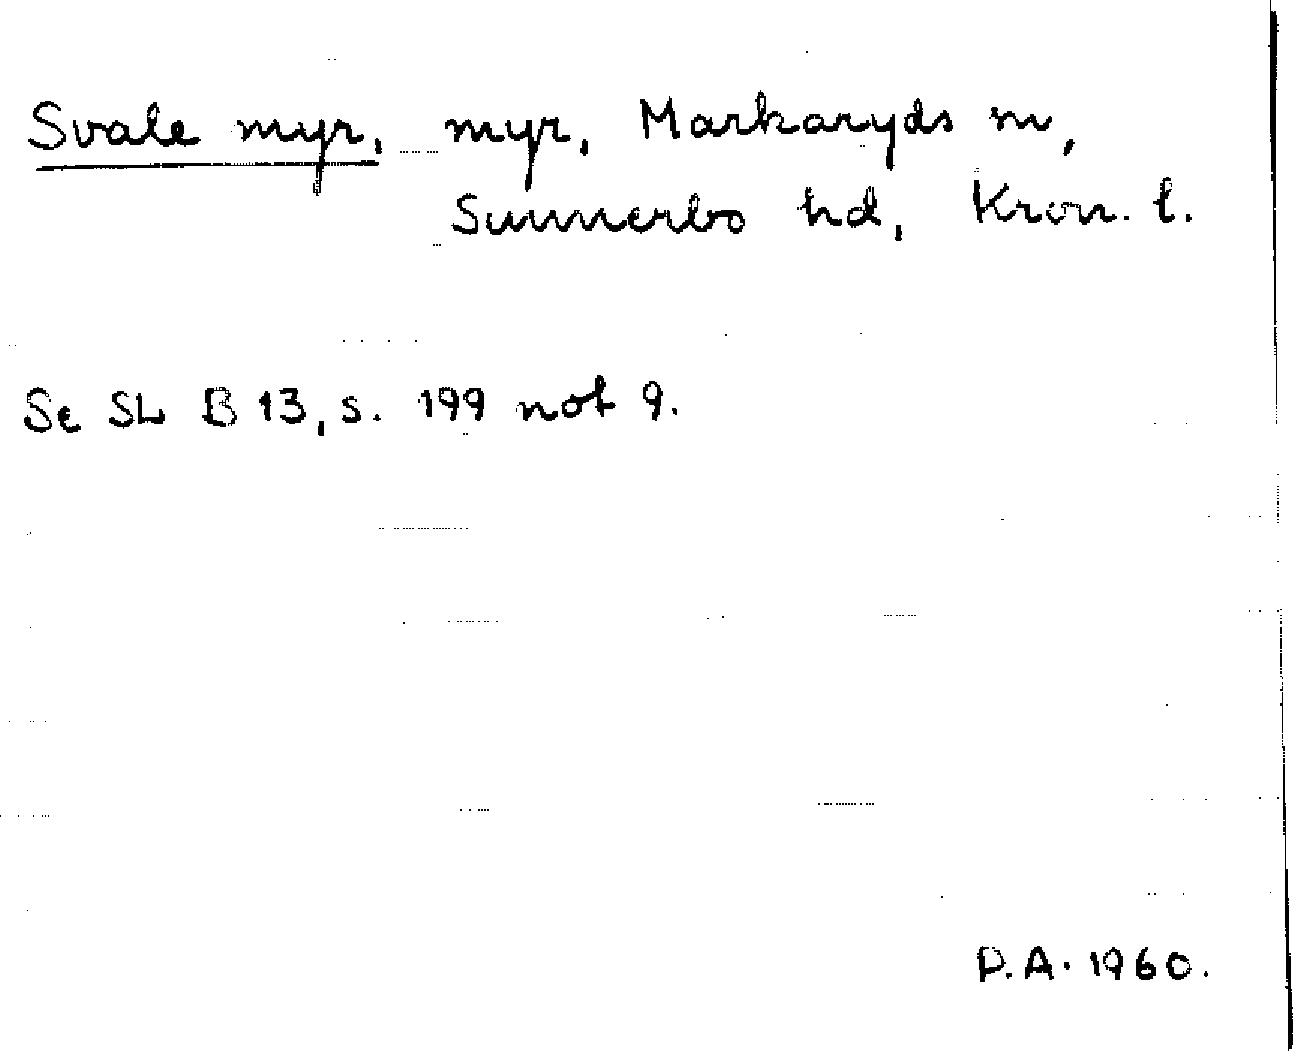 Svale myr, myr, Markaryds sn,
Sunnerbo hd, Kron. l.
Se SL B 13, s. 199 not 9.
P.A. 1960.